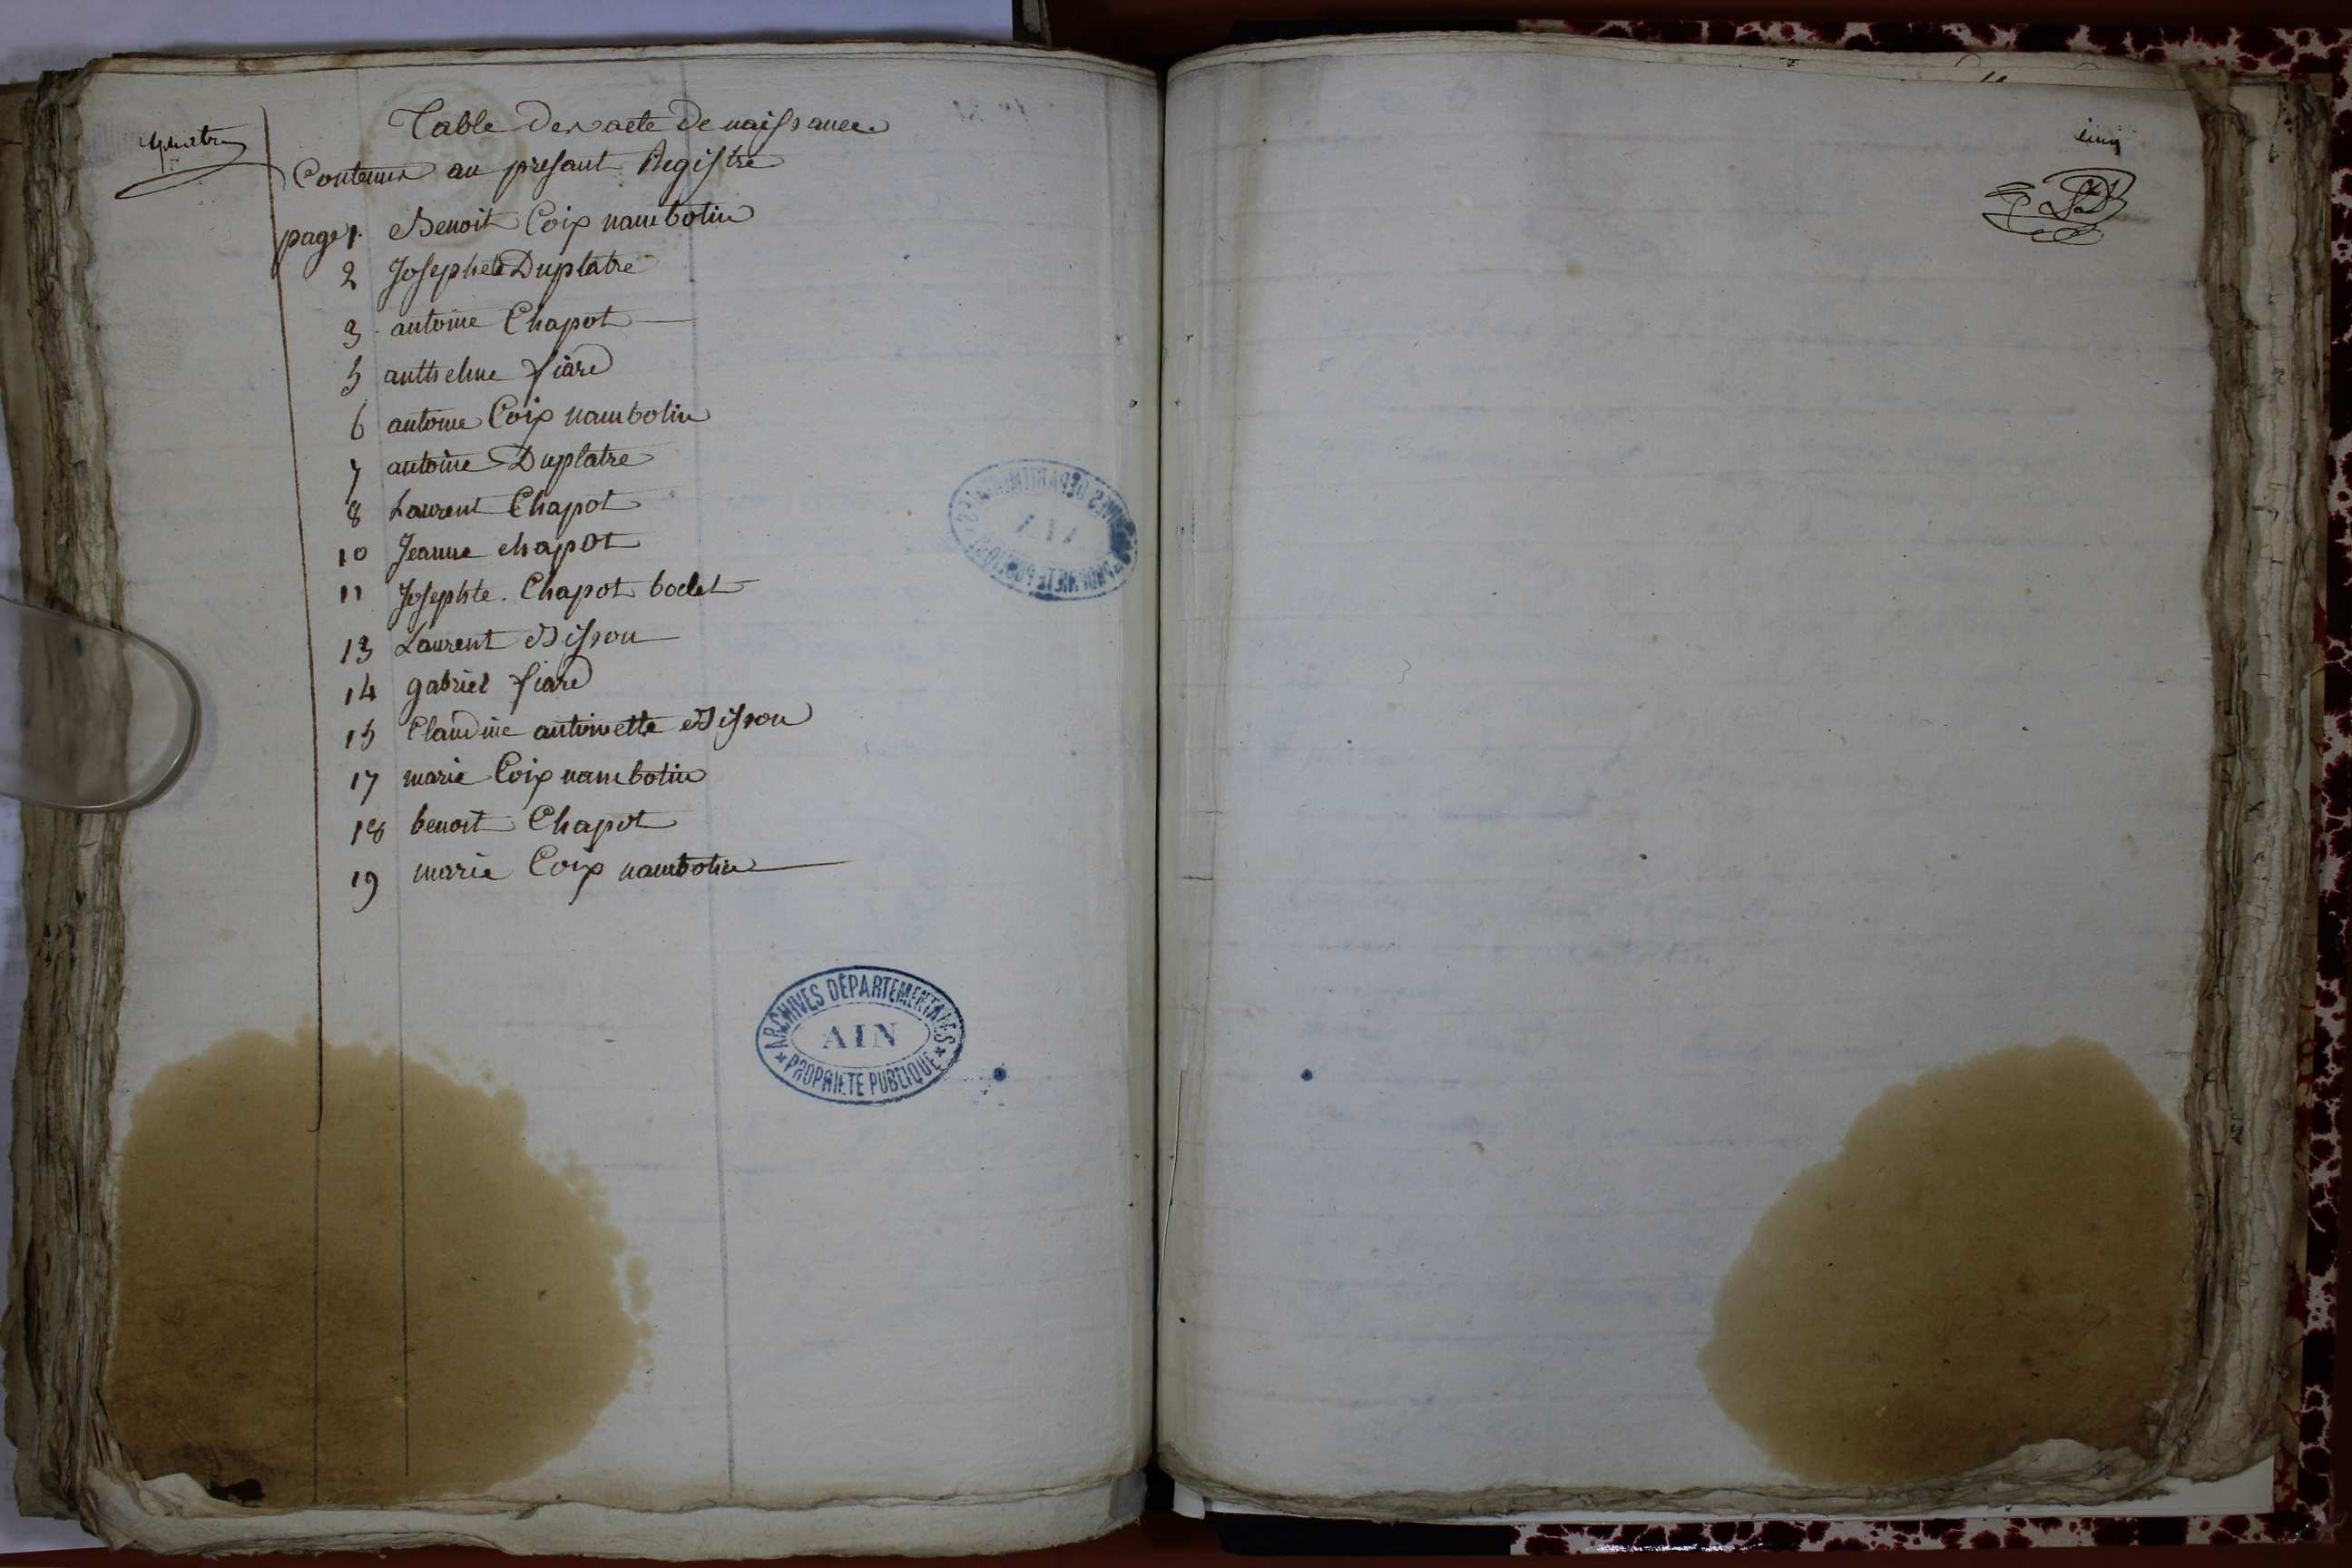 quatre
Table des acte de naissance
Contenus au presant Registre
page 1. Benoit Coix nambotin
2 Josephete Duplatre
3. antoine Chapot
5 anthelme fiard
6 antoine Coix nambotin
7 antoine Duplatre
8 Laurent Chapot
10 Jeanne chapot
11 Josephte. Chapot bollet
13 Laurent Bisson
14 gabriel fiard
15 Claudine antoinette Bisson
17 marie Coix nambotin
18 benoit Chapot
19 marie Coix nambotin
ARCHIVES DÉPARTEMENTALES
AIN
* PROPRIÉTÉ PUBLIQUE *
cinq